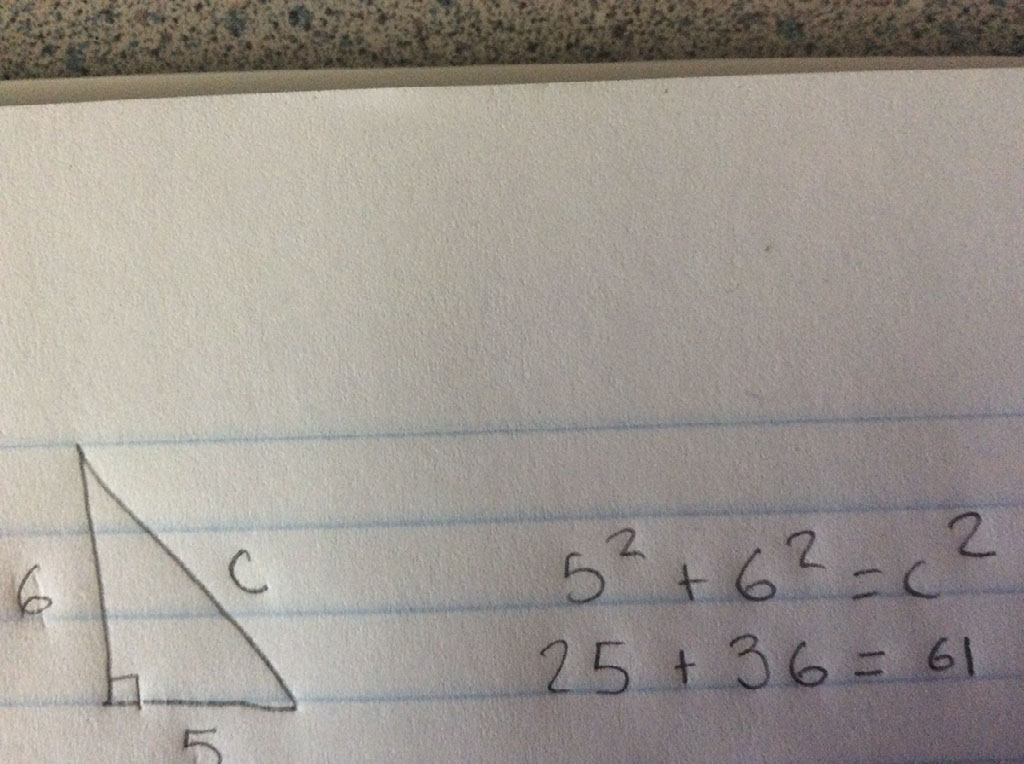 6
c
5
5² + 6² = c²
25 + 36 = 61